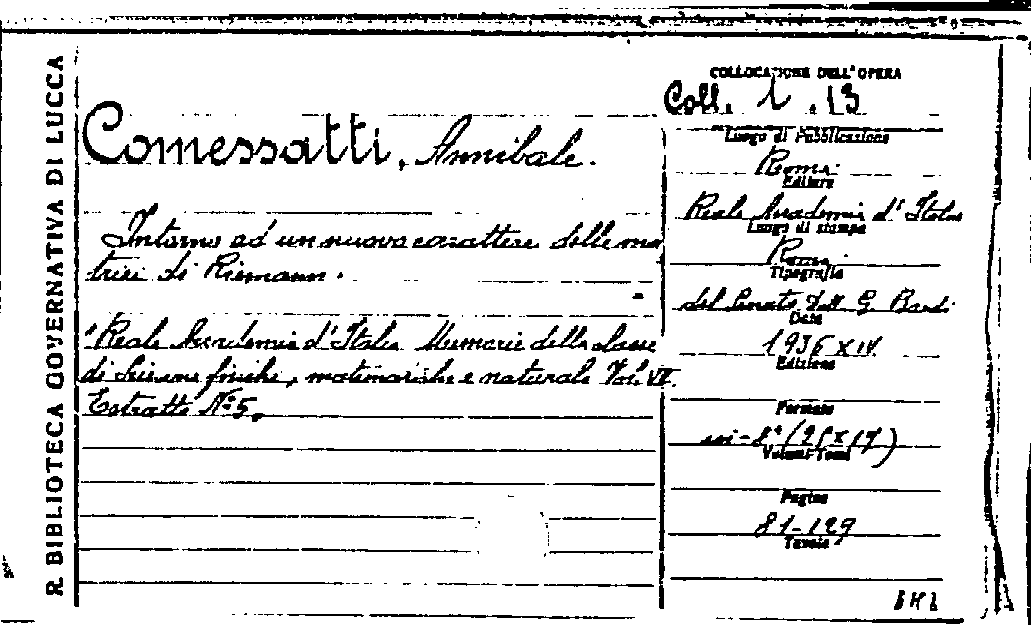 R. BIBLIOTECA GOVERNATIVA DI LUCCA
Comessatti, Annibale.
Intorno ad un nuovo carattere delle ma
trici di Riemann.
Reale Accademia d'Italia Memorie della classe
di Scienze fisiche, matematiche e naturali Vol. VII.
Estratto N° 5.
COLLOCAZIONE DELL'OPERA
Coll. 1.13
Luogo di Pubblicazione
Roma
Editore
Reale Accademia d'Italia
Luogo di stampa
Roma
Tipografia
del Senato Dott. G. Bardi
Data
1936 XIV
Edizione
Formato
in-8°
Volumi-Tomi
Pagine
81-129
Tavole